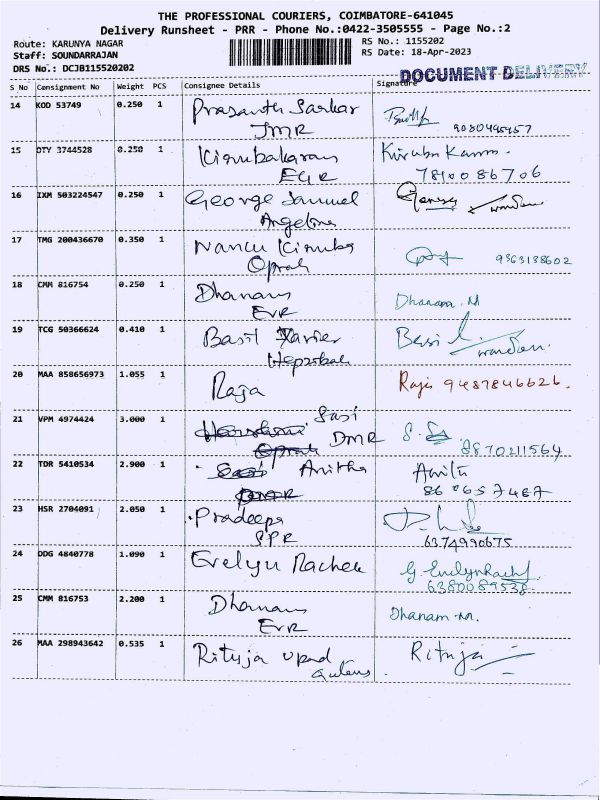 THE PROFESSIONAL COURIERS, COIMBATORE-641045
Delivery Runsheet - PRR - Phone No.:0422-3505555 - Page No.:2
Route: KARUNYA NAGAR
RS No.: 1155202
Staff: SOUNDARRAJAN
RS Date: 18-Apr-2023
DRS No.: DCJB115520202
DOCUMENT DELIVERY
S No Consignment No Weight PCS Consignee Details Signature
14 KOD 53749 0.250 1 Prasanth Sarkar
JMR
9080495457
15 DTY 3744528 0.250 1 Kirubakaran
EGR
7810086706
16 IXM 503224547 0.250 1 George Samuel
Angeline
17 TMG 200436670 0.350 1 Nancy Kiruba
Oprah
9363138602
18 CMM 816754 0.250 1 Dhanam Dhanam. M
EVR
19 TCG 50366624 0.410 1 Basil Xavier
Hepzibah
20 MAA 858656973 1.055 1 Raja Raja 9487846626.
21 VPM 4974424 3.000 1 Sasi
DMR
8870211564
22 TDR 5410534 2.900 1 Anitha Anitu
860657487
23 HSR 2704091 2.050 1 Pradeepa
SPR
6374990675
24 DDG 4840778 1.090 1 Evelyn Rachel
6380089538
25 CMM 816753 2.200 1 Dhanam Dhanam-M.
EVR
26 MAA 298943642 0.535 1 Rituja Upad Rituja